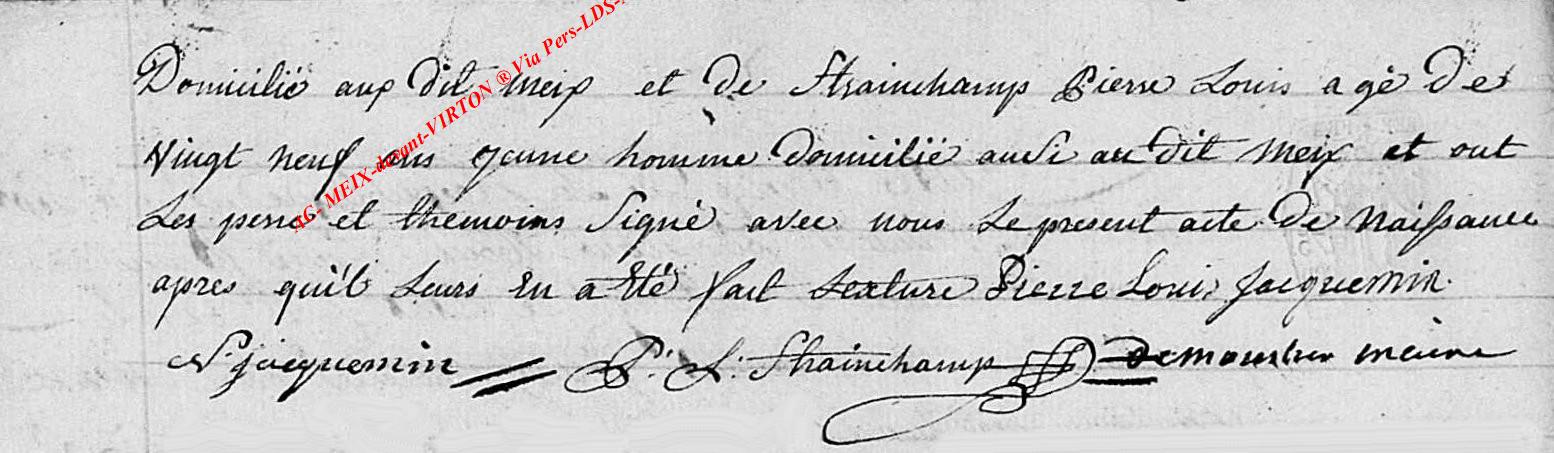 Domicilié aux dit Meix et de Strainchamps Pierre Louis agé De
Vingt neuf ans jeune homme domicilié ausi au dit Meix et ont
Les peres et themoins Signé avec nous Le present acte De Naissance
apres qu'il Leurs En a Eté fait Lexture Pierre Louis Jacquemin.
N. jacquemin P. L. Strainchamp maire
AG- MEIX-devant-VIRTON ® Via Pers-LDS-